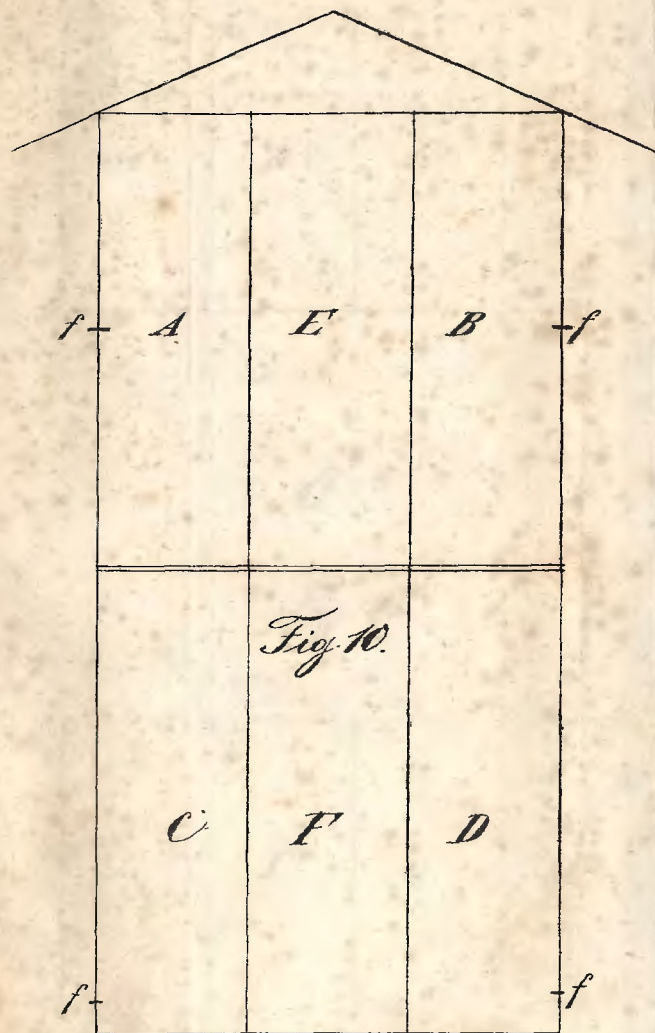 f A E B f
Fig. 10.
C F D
f f